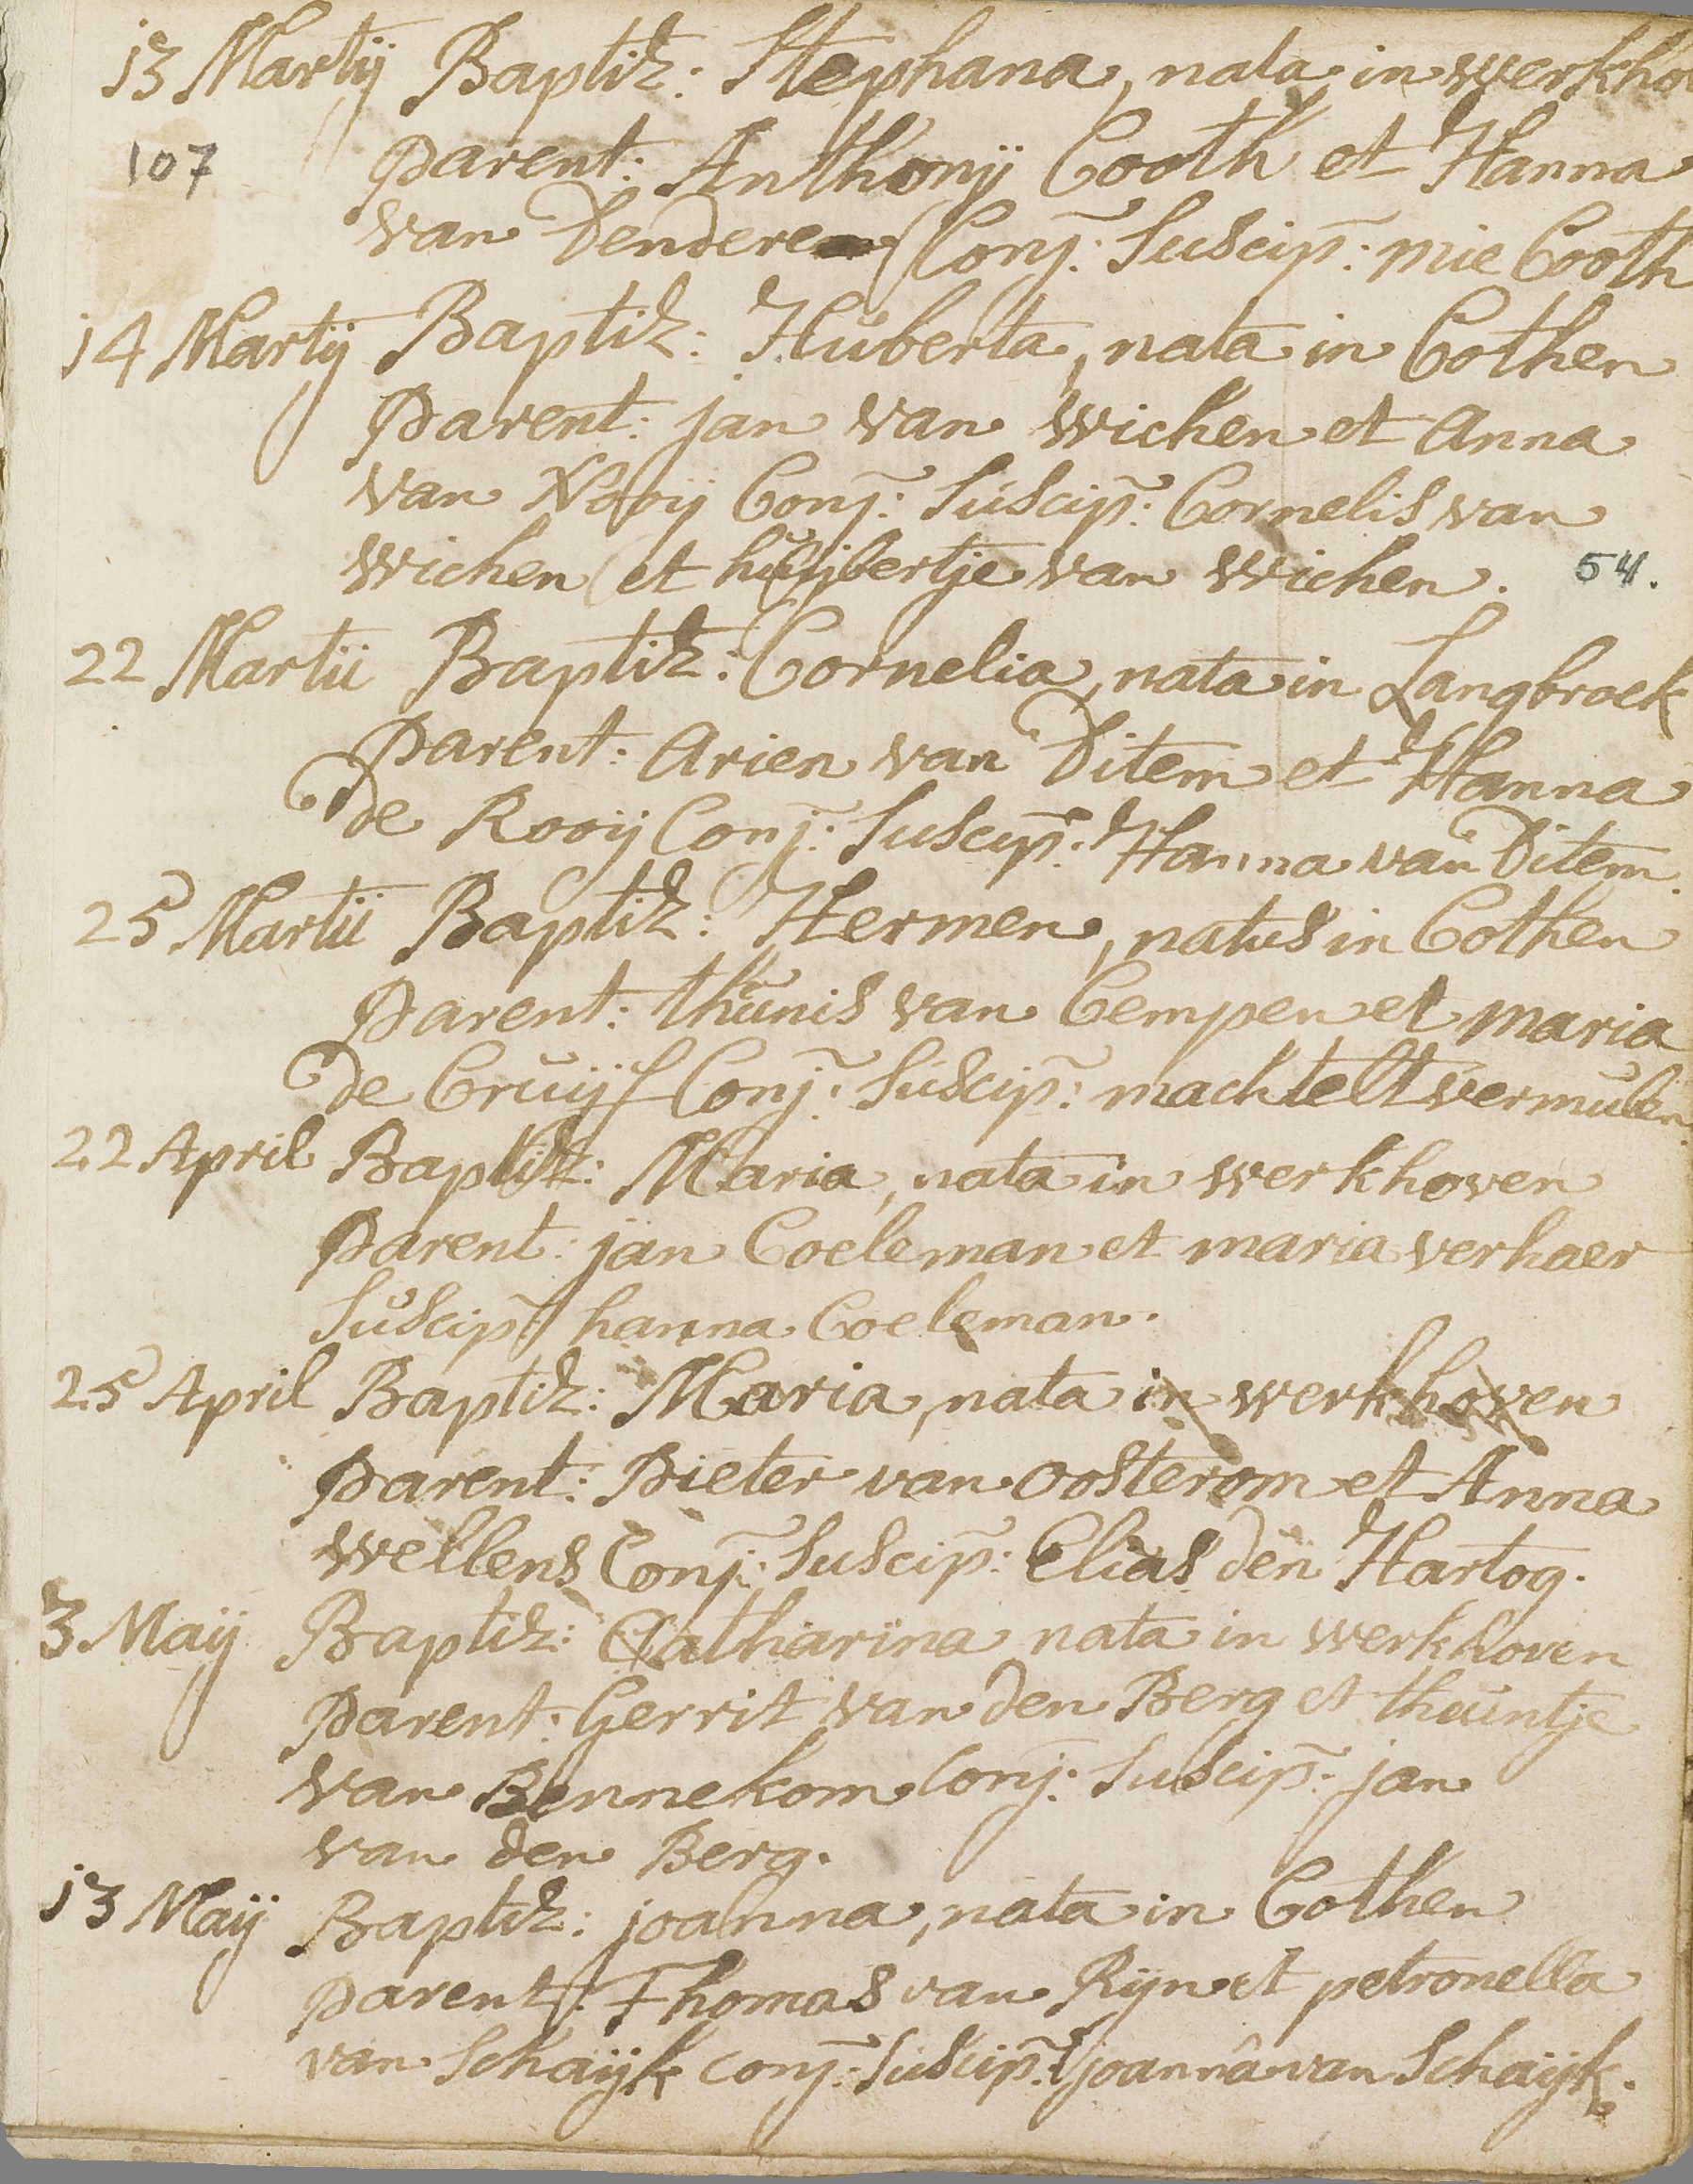 13 Martij Baptiz: Stephana, nata in werkho
107 parent: Anthonij Cooth et Hanna
van Dendere Conj: Suscip: mie Cooth
14 Martij Baptiz: Huberta, nata in Cothen
Parent: jan van wichen et Anna
van Nooij Conj: Suscip: Cornelis van
wichen et huijbertje van wichen. 54.
22 Martii Baptiz: Cornelia, nata in Langbroek
Parent: Arien van Ditem et Hanna
De Rooij Conj: Suscip: Hanna van Ditem.
25 Martii Baptiz: Hermen, natus in Cothen
Parent: thunis van Cempen et maria
De Cruijf Conj: Suscip: machtelt vermulen.
22 April Baptiz: Maria, nata in werkhoven
Parent: jan Coeleman et maria verhaer
Suscip: hanna Coeleman.
25 April Baptiz: Maria, nata in werkhoven
Parent: Pieter van Oosterom et Anna
wellens Conj: Suscip: Elias den Hartog.
3 Maij Baptiz: Catharina nata in werkhoven
Parent: Gerrit van den Berg et thuintje
van Bennekom Conj: Suscip: jan
van den Berg.
13 Maij Baptiz: joanna, nata in Cothen
parent: Thomas van Rijn et petronella
van Schaijk conj: Suscip: joanna van Schaijk.